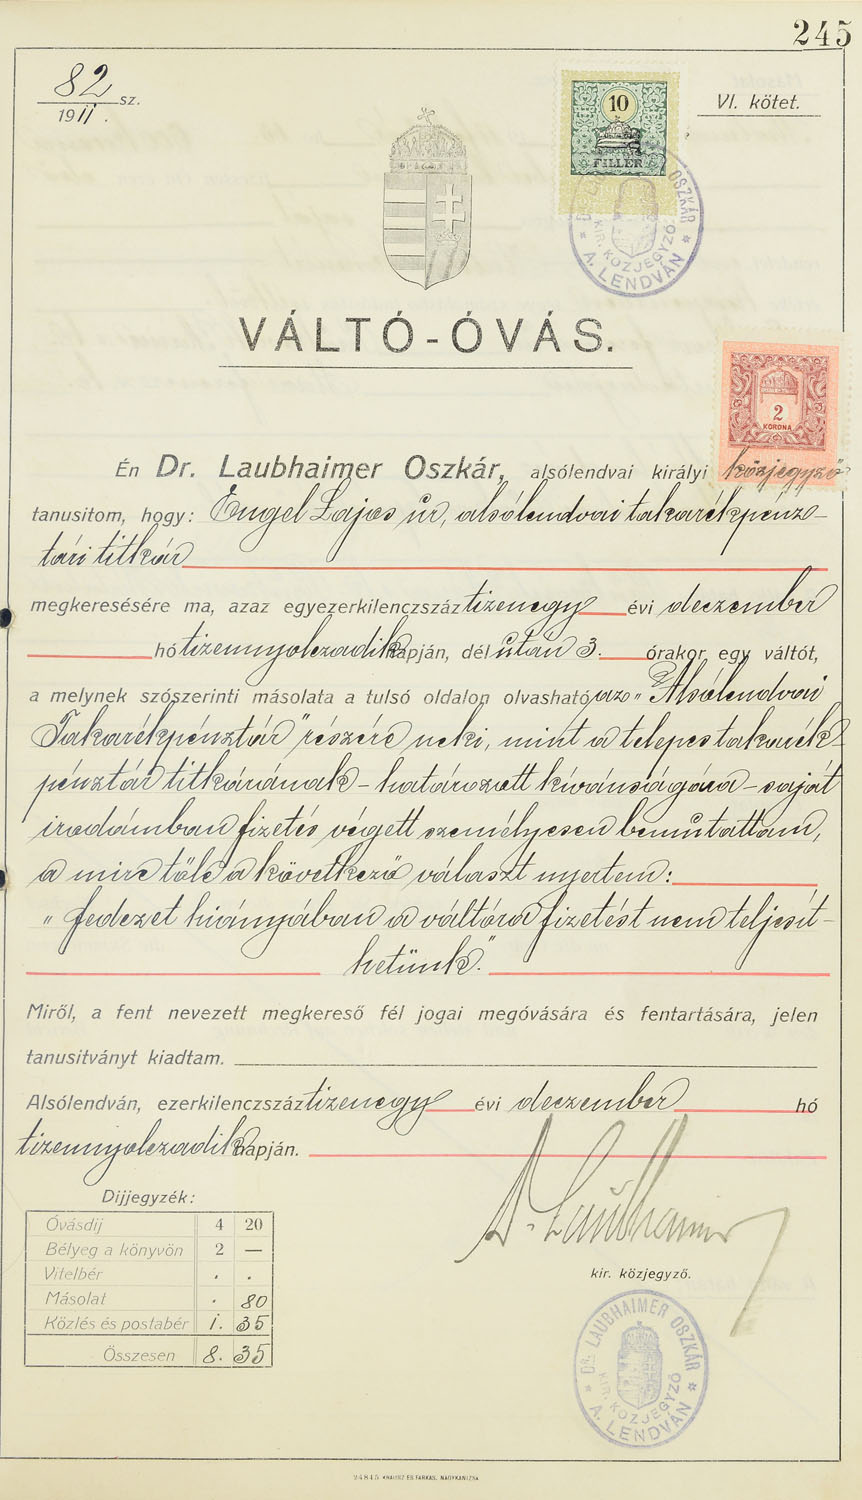 245
82 sz.
1911.
VI. kötet.
10
FILLÉR
Dr. LAUBHAIMER OSZKÁR
KIR. KÖZJEGYZŐ
* A. LENDVÁN *
VÁLTÓ-ÓVÁS.
2
KORONA
Én Dr. Laubhaimer Oszkár, alsólendvai királyi közjegyző
tanusitom, hogy: Engel Lajos úr, alsólendvai takarékpénz-
tári titkár
megkeresésére ma, azaz egyezerkilenczszáz tizenegy évi deczember
hó tizennyolczadik napján, dél után 3. órakor egy váltót,
a melynek szószerinti másolata a tulsó oldalon olvasható, az „Alsólendvai
Takarékpénztár" részére neki, mint a telepes takarék-
pénztár titkárának – határozott kívánságára – saját
irodámban fizetés végett személyesen bemutattam,
a mire tőle a következő választ nyertem:
„fedezet hiányában a váltóra fizetést nem teljesít-
hetünk."
Miről, a fent nevezett megkereső fél jogai megóvására és fentartására, jelen
tanusitványt kiadtam.
Alsólendván, ezerkilenczszáz tizenegy évi deczember hó
tizennyolczadik napján.
Dr. Laubhaimer
kir. közjegyző.
Dijjegyzék:
Óvásdij 4 20
Bélyeg a könyvön 2 —
Vitelbér . .
Másolat . 80
Közlés és postabér 1. 35
Összesen 8. 35
Dr. LAUBHAIMER OSZKÁR
KIR. KÖZJEGYZŐ
* A. LENDVÁN *
24845 KRAUSZ ÉS FARKAS, NAGYKANIZSA